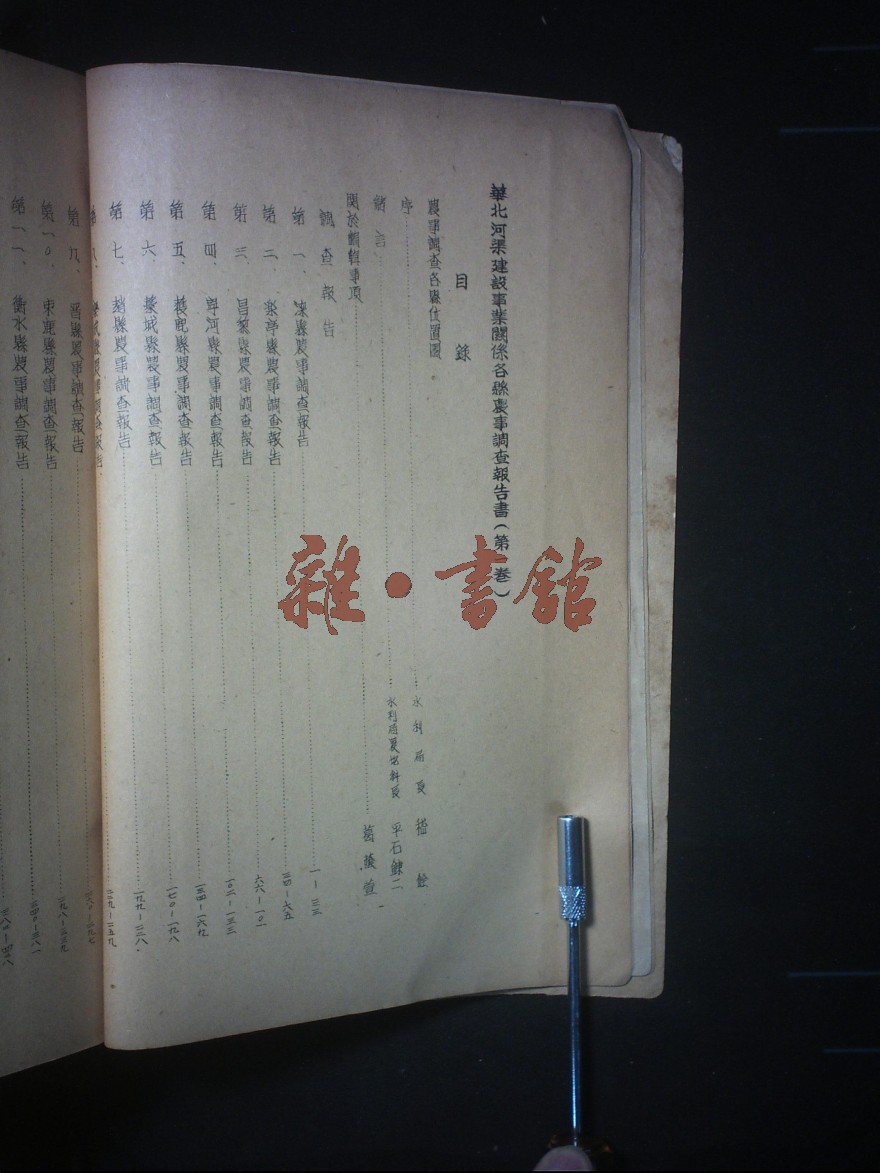 華北河渠建設事業關係各縣農事調查報告書（第一卷）
目錄
農事調查各縣位置圖
序 水利局長
緒言 水利局農地科長 平石
關於編輯事項
調查報告
第一、 縣農事調查報告 一－三三
第二、樂亭縣農事調查報告 三四－六五
第三、昌黎縣農事調查報告 六六－一〇一
第四、寧河縣農事調查報告 一〇二－一三三
第五、獲鹿縣農事調查報告 一三四－一六九
第六、藁城縣農事調查報告 一七〇－一九八
第七、趙縣農事調查報告 一九九－二二八
第八、 縣農事調查報告 二二九－二五九
第九、晉縣農事調查報告 二六〇－二九七
第一〇、束鹿縣農事調查報告 二九八－三三九
第一一、衡水縣農事調查報告 三四〇－三八一
雜·書館